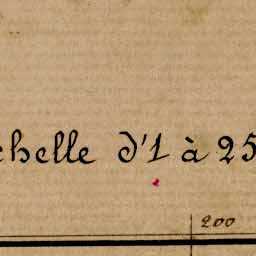 chelle d'1 à 25
200